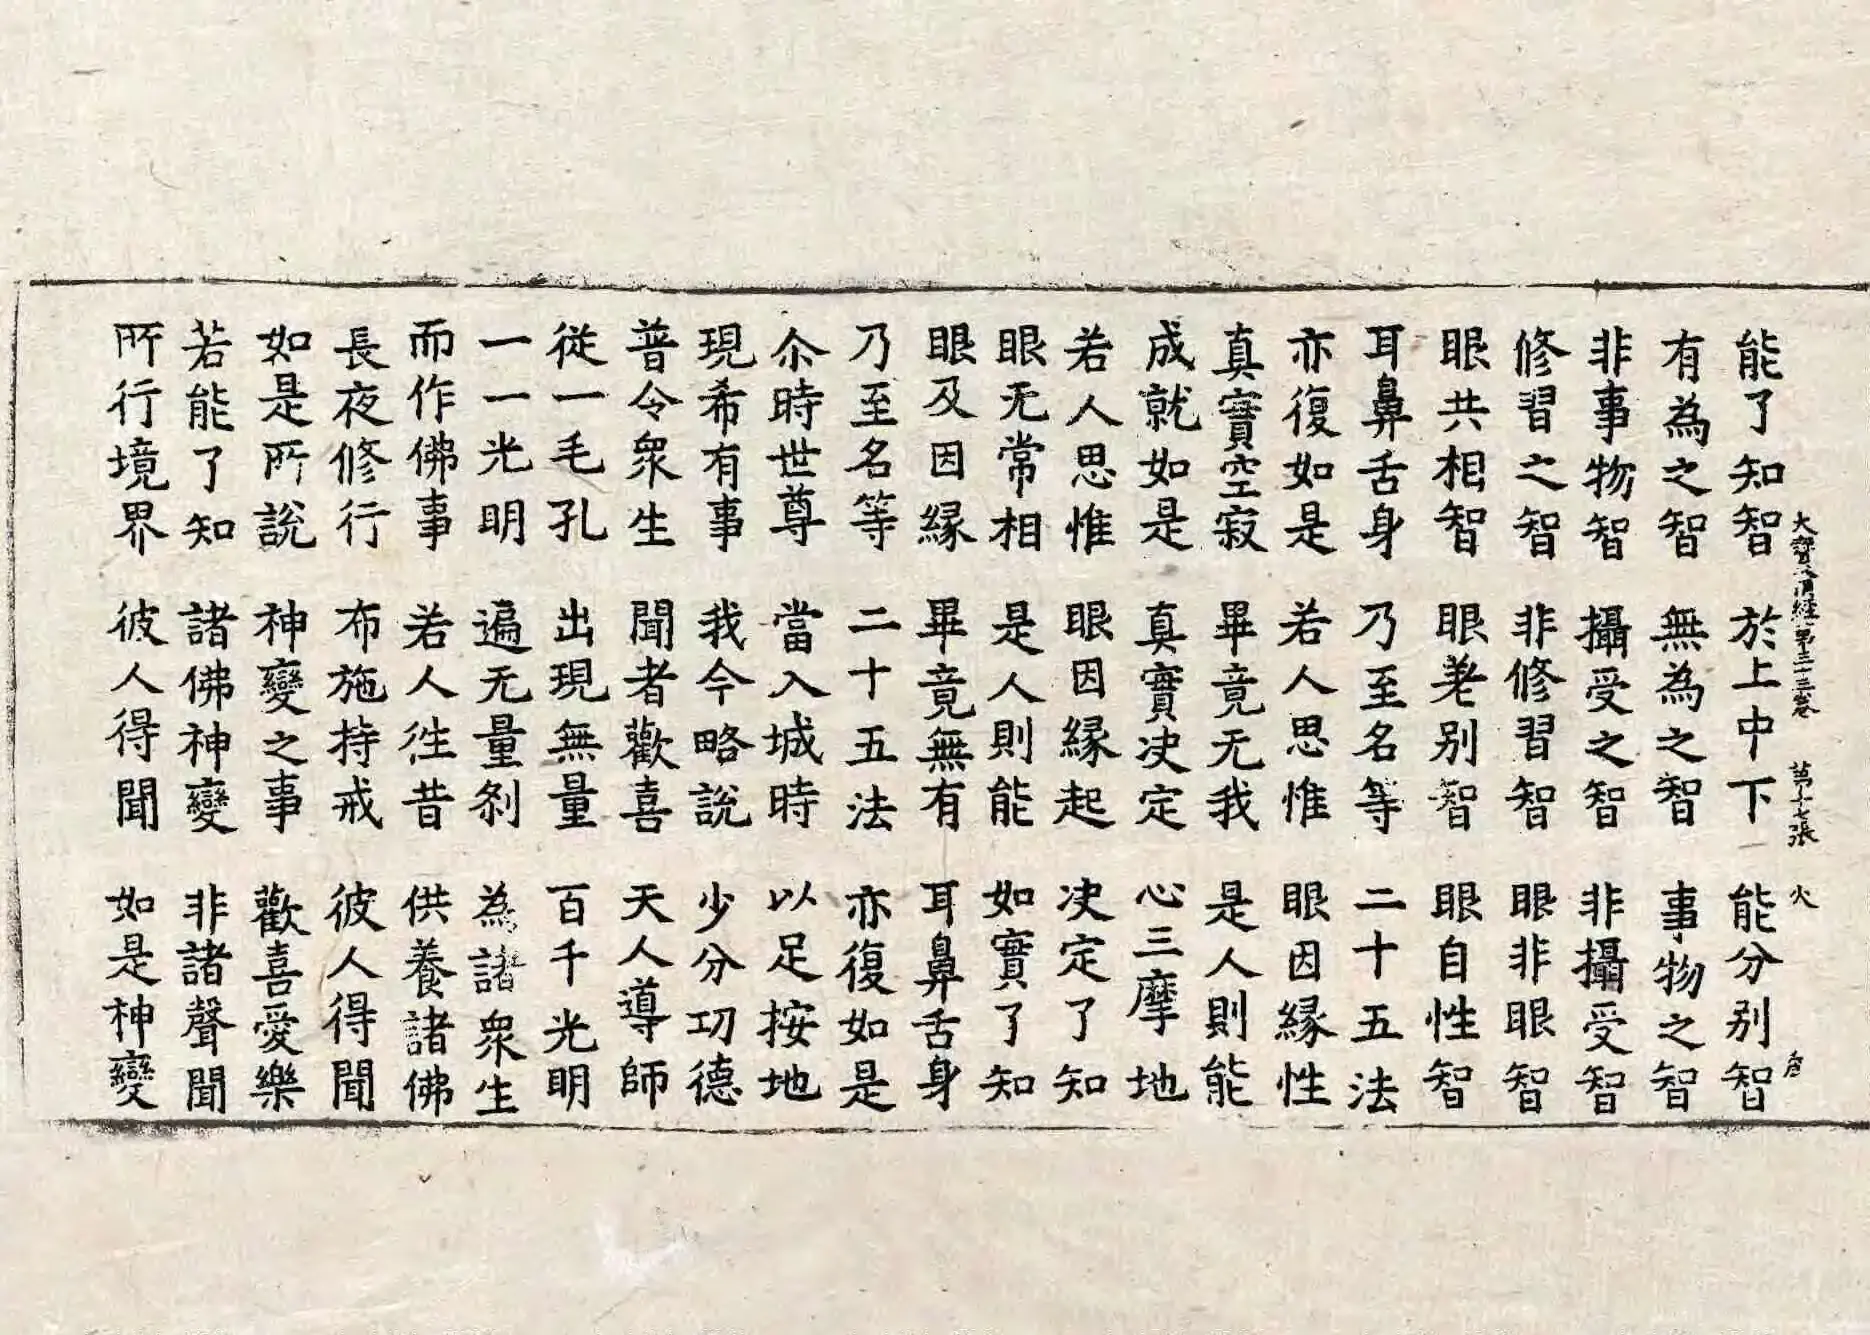 大寶積經第三十三卷 第十七張 火
能了知智 於上中下 能分别智
有為之智 無為之智 事物之智
非事物智 攝受之智 非攝受智
修習之智 非修習智 眼非眼智
眼共相智 眼差别智 眼自性智
耳鼻舌身 乃至名等 二十五法
亦復如是 若人思惟 眼因緣性
真實空寂 畢竟无我 是人則能
成就如是 真實决定 心三摩地
若人思惟 眼因緣起 决定了知
眼无常相 是人則能 如實了知
眼及因緣 畢竟無有 耳鼻舌身
乃至名等 二十五法 亦復如是
尒時世尊 當入城時 以足按地
現希有事 我今略說 少分功德
普令衆生 聞者歡喜 天人導師
從一毛孔 出現無量 百千光明
一一光明 遍无量刹 為諸衆生
而作佛事 若人往昔 供養諸佛
長夜修行 布施持戒 彼人得聞
如是所說 神變之事 歡喜愛樂
若能了知 諸佛神變 非諸聲聞
所行境界 彼人得聞 如是神變